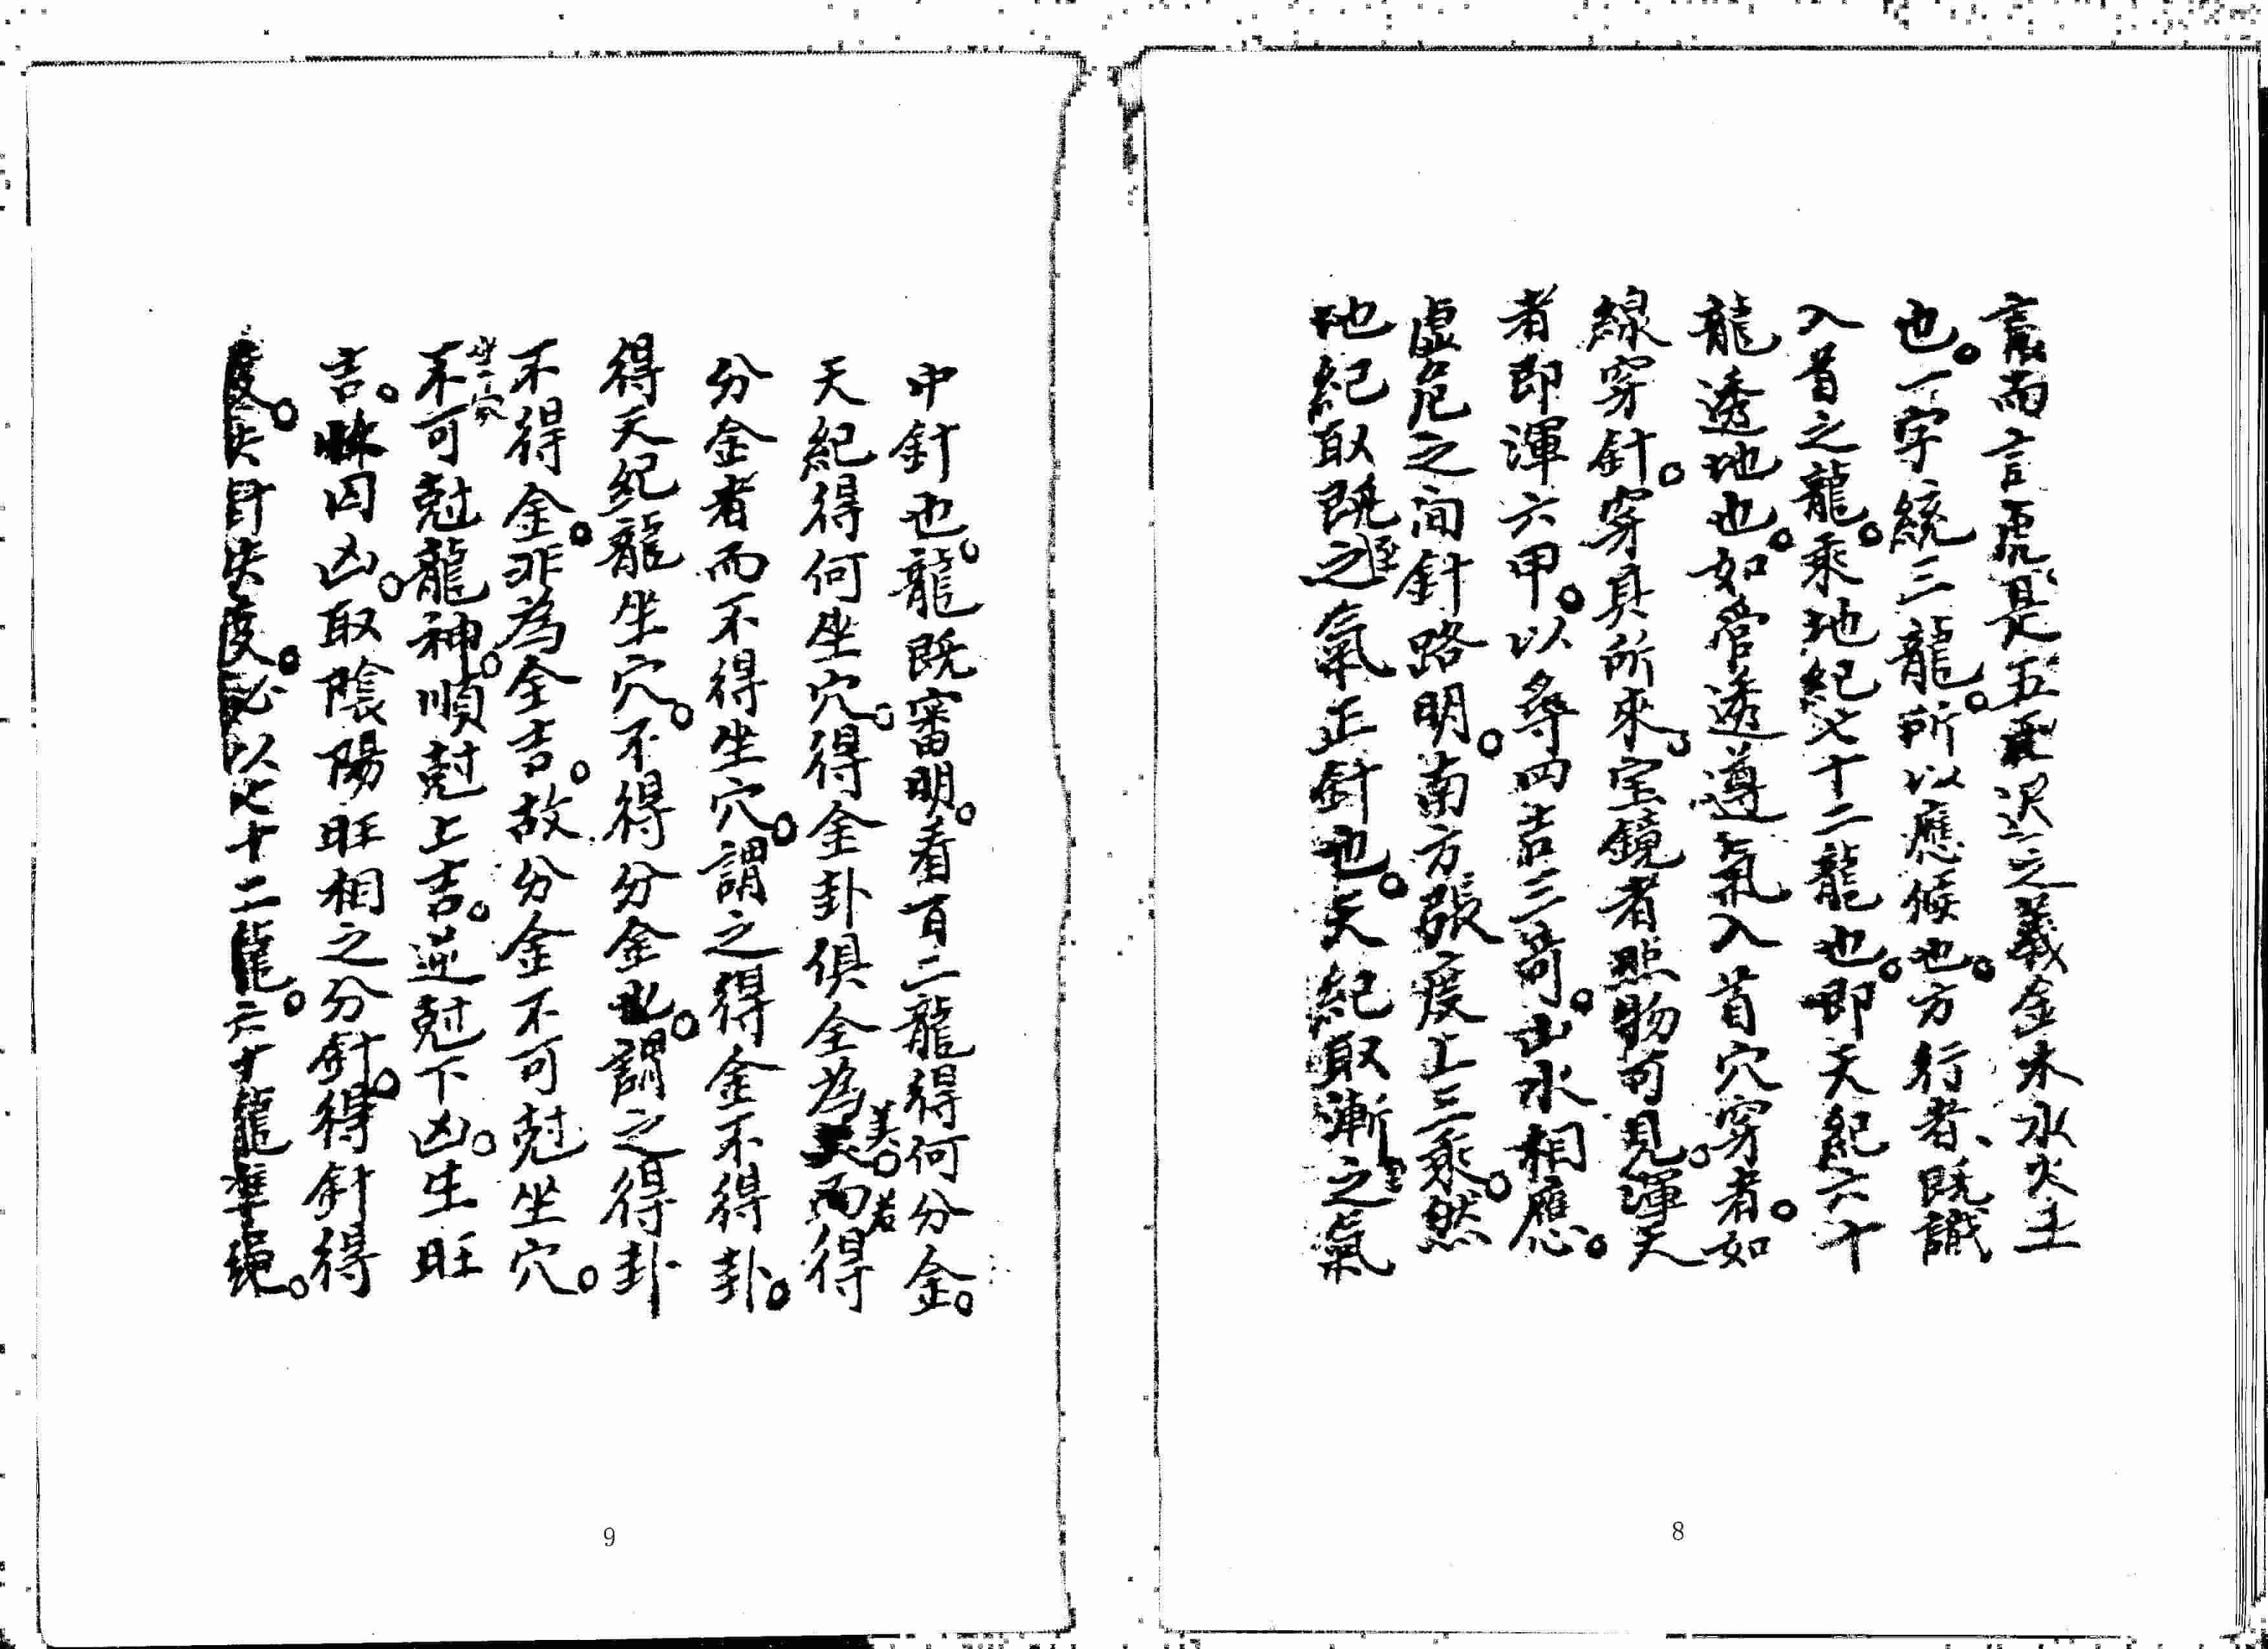 言而言虎是五飛溟之義金木水火土
也。一字統三龍。所以應候也。方行者、既識
入首之龍。乘地紀七十二龍也。即天紀六十
龍透地也。如管透遵氣入首穴穿者。如
線穿針。穿其所來。宝鏡者照物可見。渾天
者即渾六甲。以尋四吉三奇。山水相應。
虛危之间針路明。南方張度上三乘。然
地紀取既往之氣正針也。天紀取漸至之氣
8
中針也。龍既審明。看百二龍得何分金。
天紀得何坐穴。得金卦俱全為美。若得
分金者而不得坐穴。謂之得金不得卦。
得天紀龍坐穴。不得分金也。謂之得卦
不得金。非為全吉。故分金不可尅坐穴。
坐穴
不可尅龍神。順尅上吉。逆尅下凶。生旺
吉。休囚凶。取陰陽旺相之分針。得針得
度。失針失度。必以七十二龍。六十龍準绳。
9